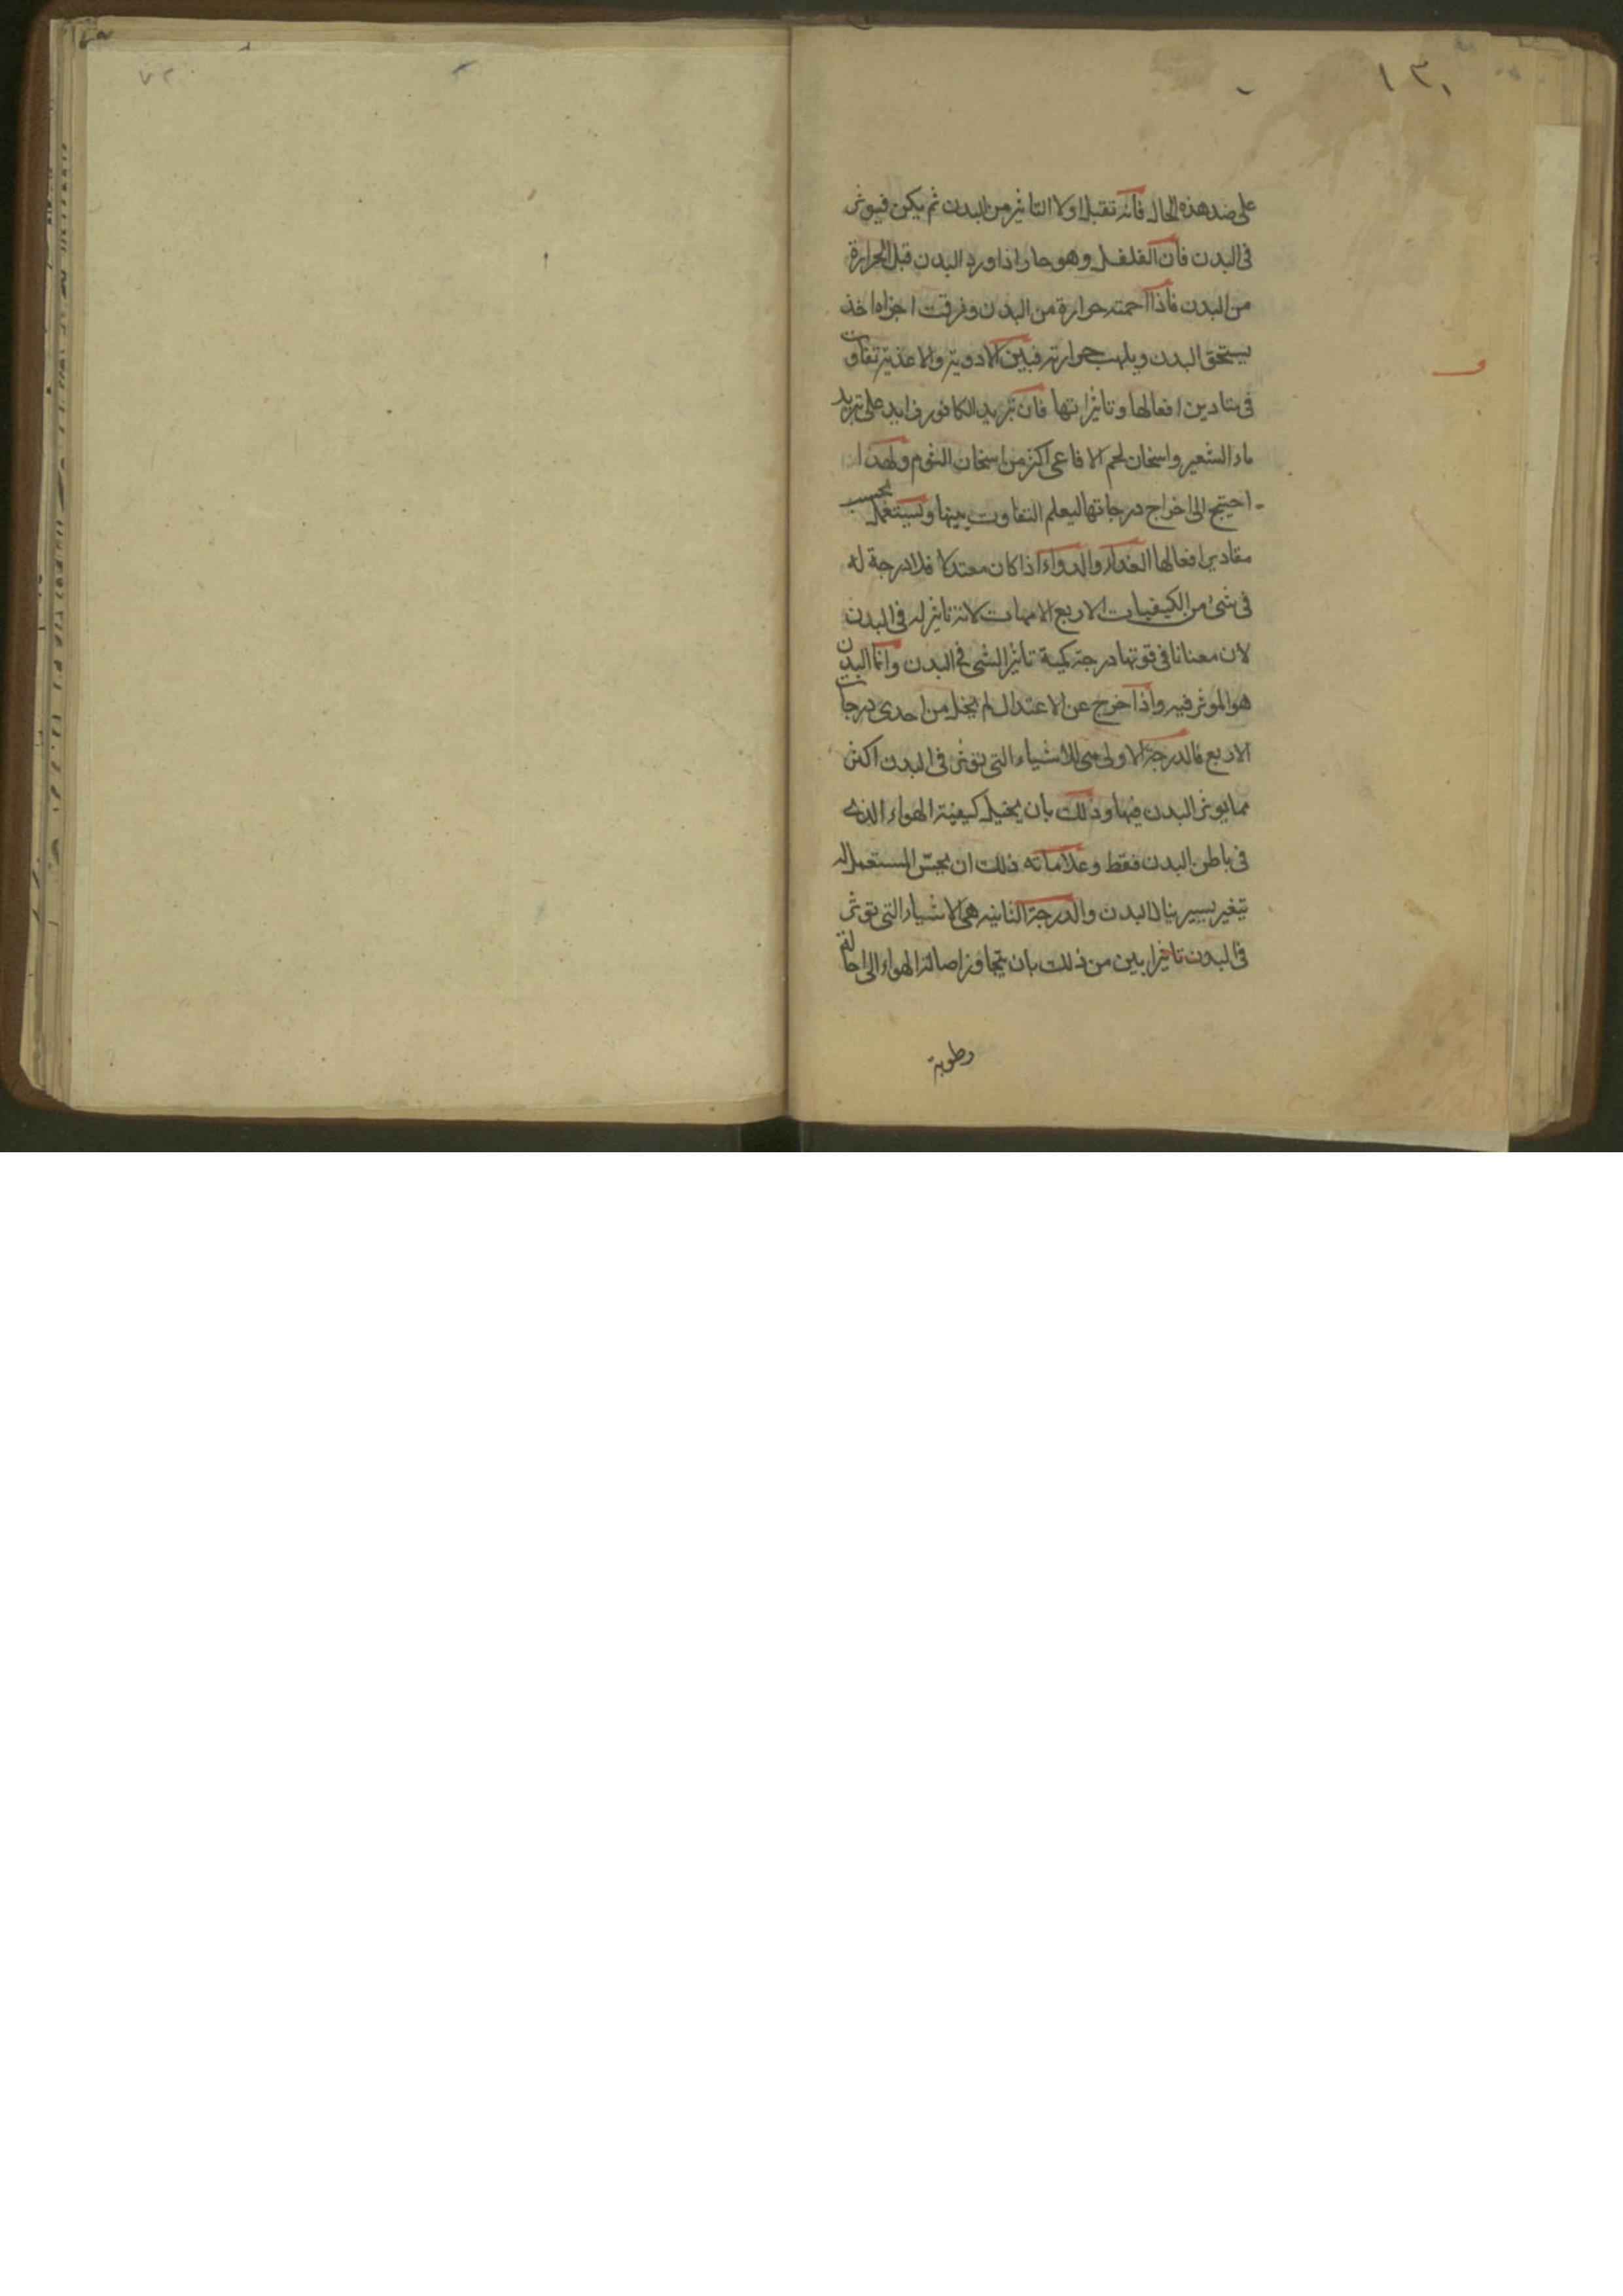 ١٣٠
٧٢
على ضد هذه الحال فانه تقبل اولا التاثير من البدن ثم يكن فيوثر
فى البدن فان الفلفل وهو حار اذا ورد البدن قبل الحرارة
من البدن فاذا احمته حرارة من البدن وفرقت اجزاه اخذ
يسخن البدن ويلهب حرارته فبين الادوية والاغذية تفاوت
فى افعالها وتاثيراتها فان تبريد الكافور زايد على تبريد
ماء الشعير واسخان لحم الافاعى اكثر من اسخان الثوم ولهذا
احتيج الى اخراج درجاتها ليعلم التفاوت بينها وتستعمل بحسب
مقادير افعالها الغذاء والدواء اذا كان معتدلا فلا درجة له
فى شئ من الكيفيات الاربع الامهات لانه تاثير له فى البدن
لان معنانا فى قوتها درجة كمية تاثير الشى فى البدن وانما البدن
هو الموثر فيه واذا خرج عن الاعتدال لم يخل من احدى درجات
الاربع فالدرجة الاولى هى للاشياء التى توثر فى البدن اكثر
مما يوثر البدن فيها وذلك بان يحيل كيفية الهواء الذى
فى باطن البدن فقط وعلاماته ذلك ان يحس المستعمل له
بتغير يسير ينال البدن والدرجة الثانيه هى الاشياء التى توثر
فى البدن تاثيرا بين من ذلك بان يتجاوز اصالة الهواء الى احالة
رطوبة